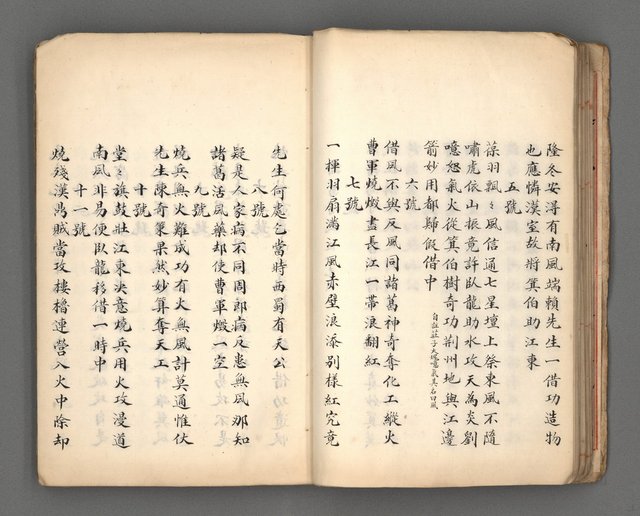 隆冬安得有南風端賴先生一借功造物
也應憐漢室故將箕伯助江東
五號
葆羽飄〻風信通七星壇上祭東風不隨
嘯虎依山振竟許臥龍助水攻天為炎劉
噫怒氣火從箕伯樹奇功荊州地與江邊
箭妙用都歸假借中
自註莊子大塊噫氣其名曰風
六號
借風不與反風同諸葛神奇奪化工縱火
曹軍燒燬盡長江一帶浪翻紅
七號
一揮羽扇滿江風赤壁浪添別樣紅究竟
先生何處乞當時西蜀有天公
八號
疑是人家病不同周郎病反患無風那知
諸葛活風藥却使曹軍燬一空
九號
燒兵無火難成功有火無風計莫通惟伏
先生陳奇策果然妙算奪天工
十號
堂〻旗鼓壯江東決意燒兵用火攻漫道
南風非易便臥龍移借一時中
十一號
燒殘漢禺賊當攻樓櫓連營入火中除却